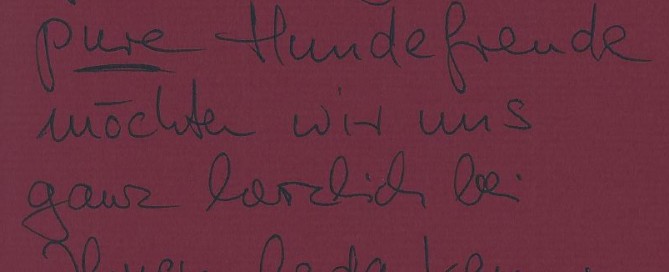 pure Hundefreude
möchten wir uns
ganz herzlich bei
Ihnen bedanken